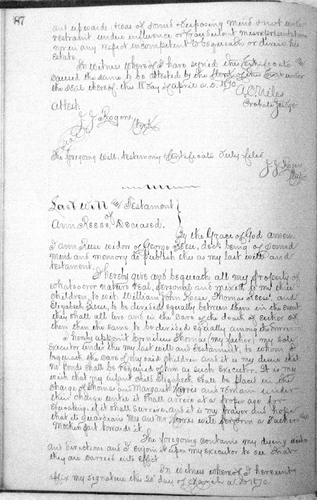 87
and upwards. Was of sound & disposing mind & not under
restraint undue influence or fraudulent misrepresentation
nor in any respect incompetent to bequeath or devise his
Estate.
In witness whereof I have signed this certificate &
caused the same to be attested by the Clerk of this Court under
the seal thereof this 18 day of April A.D. 1870
A C Miles
Probate Judge
Attest
J J Rogers
Clerk
The foregoing Will, testimony & Certificate duly filed
J J Rogers
Clk
Last Will & Testament
of
Ann Reese Deceased.
By the Grace of God amen
I Ann Reese widow of George Reese, decd. being of sound
mind and memory do publish this as my last will and
testament.
I hereby give and bequeath all my property of
whatsoever nature real, personal and mixed to my three
children, to wit William John Reese, Thomas Reese, and
Elizabeth Reese, to be divided equally between them in the event
they shall all live and in the case of the death of either of
them then the same to be divided equally among the survivors
I hereby appoint Cornelius Thomas (my father) my sole
Executor under this my last will and testament, to whom I
bequeath the care of my said children and it is my desire that
no bonds shall be required of him as such Executor. It is my
wish that my infant child Elizabeth shall be placed in the
charge of Thomas and Margaret Jones and remain under
their charge until it shall arrive at a proper age for
education, if it shall survive, and it is my prayer and hope
that its guardians Mr. and Mrs. Jones will perform a Father &
Mothers part towards it.
The foregoing contains my dying wishes
and directions and I enjoin it upon my executor to see that
they are carried into effect
In witness whereof I hereunto
affix my signature this day of March A.D. 1870